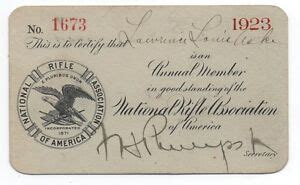 No. 1673 1923.
This is to Certify that Lawrence Louis
is an
Annual Member
in good standing of the
National Rifle Association
of America
Secretary
NATIONAL RIFLE ASSOCIATION
OF AMERICA
E PLURIBUS UNUM
INCORPORATED
1871